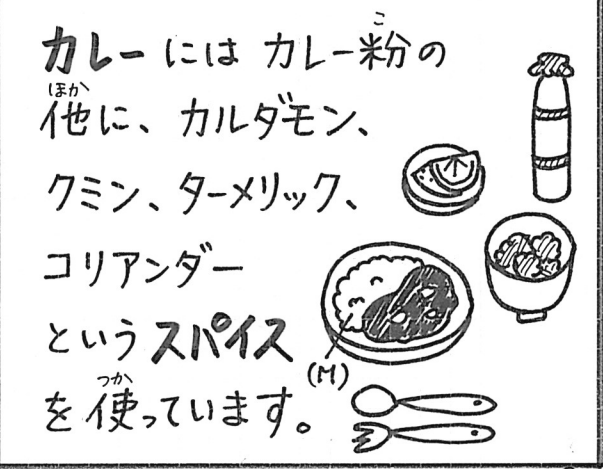 カレーには カレー粉の
他に、カルダモン、
クミン、ターメリック、
コリアンダー
というスパイス
を使っています。
こ
ほか
つか
(M)